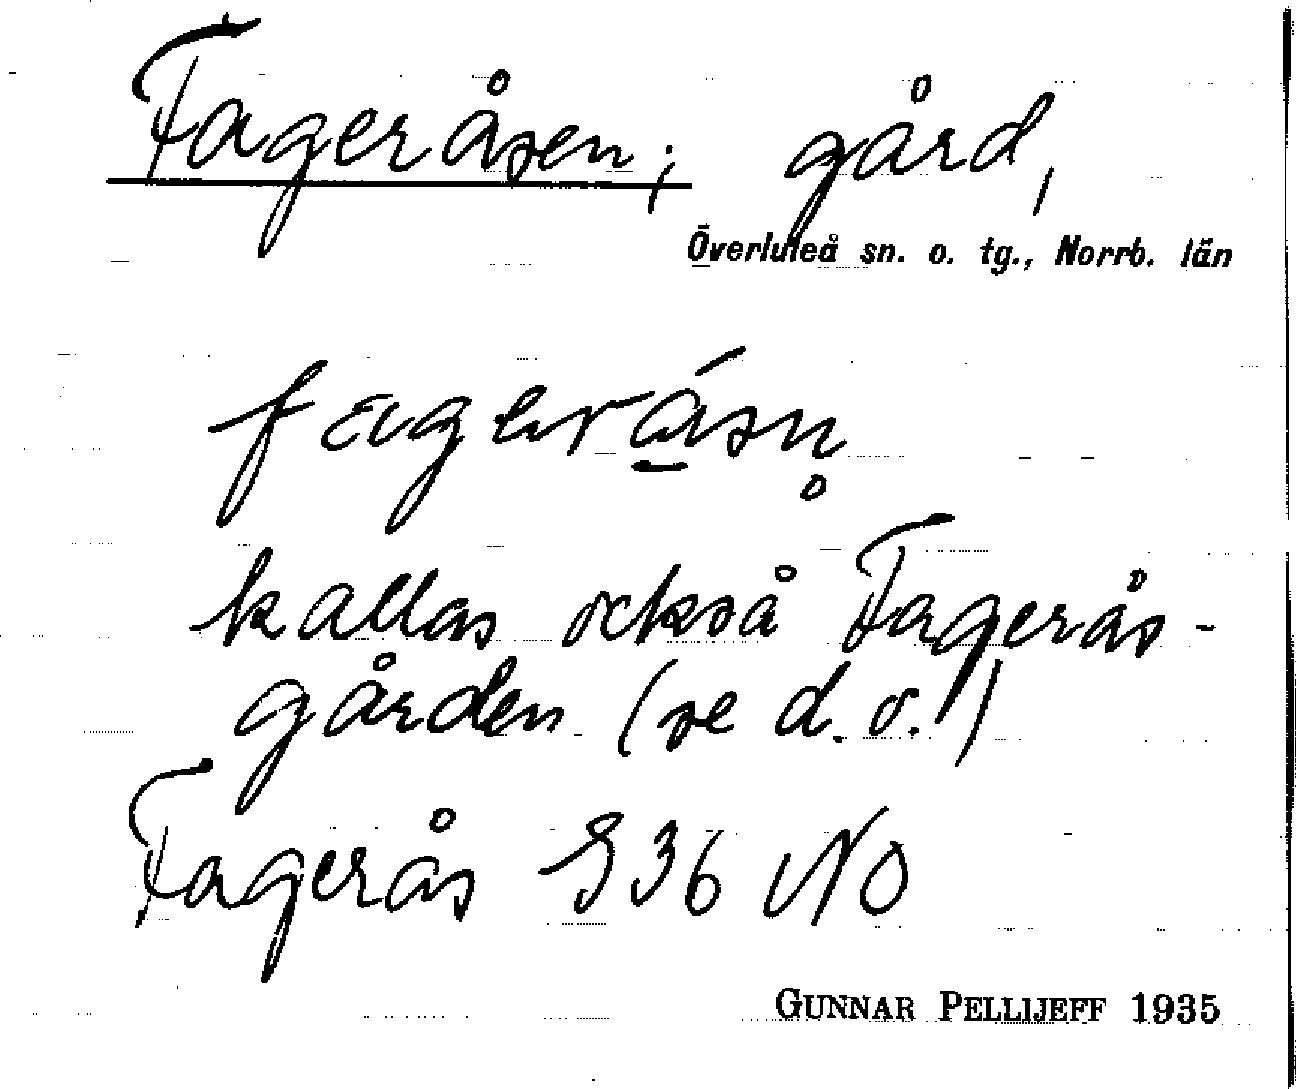 Fageråsen; gård,
Överluleå sn. o. tg., Norrb. län
kallas också Fagerås-
gården (se d.o.!)
Fagerås S36 NO
GUNNAR PELLIJEFF 1935